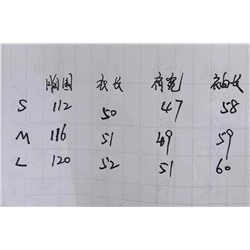 胸围 衣长 肩宽 袖长
S 112 50 47 58
M 116 51 49 59
L 120 52 51 60